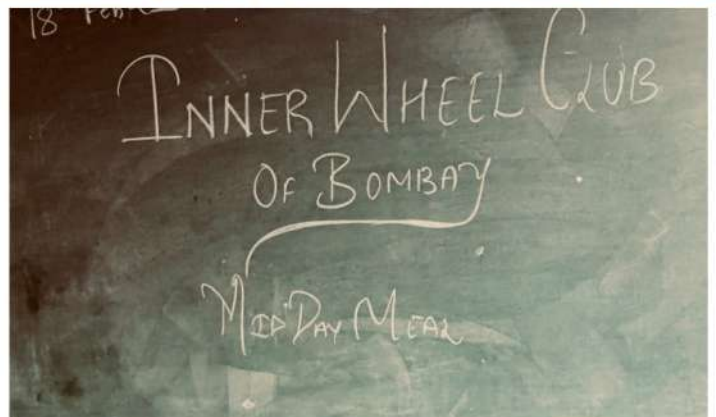 18
INNER WHEEL CLUB
OF BOMBAY
MID DAY MEAL